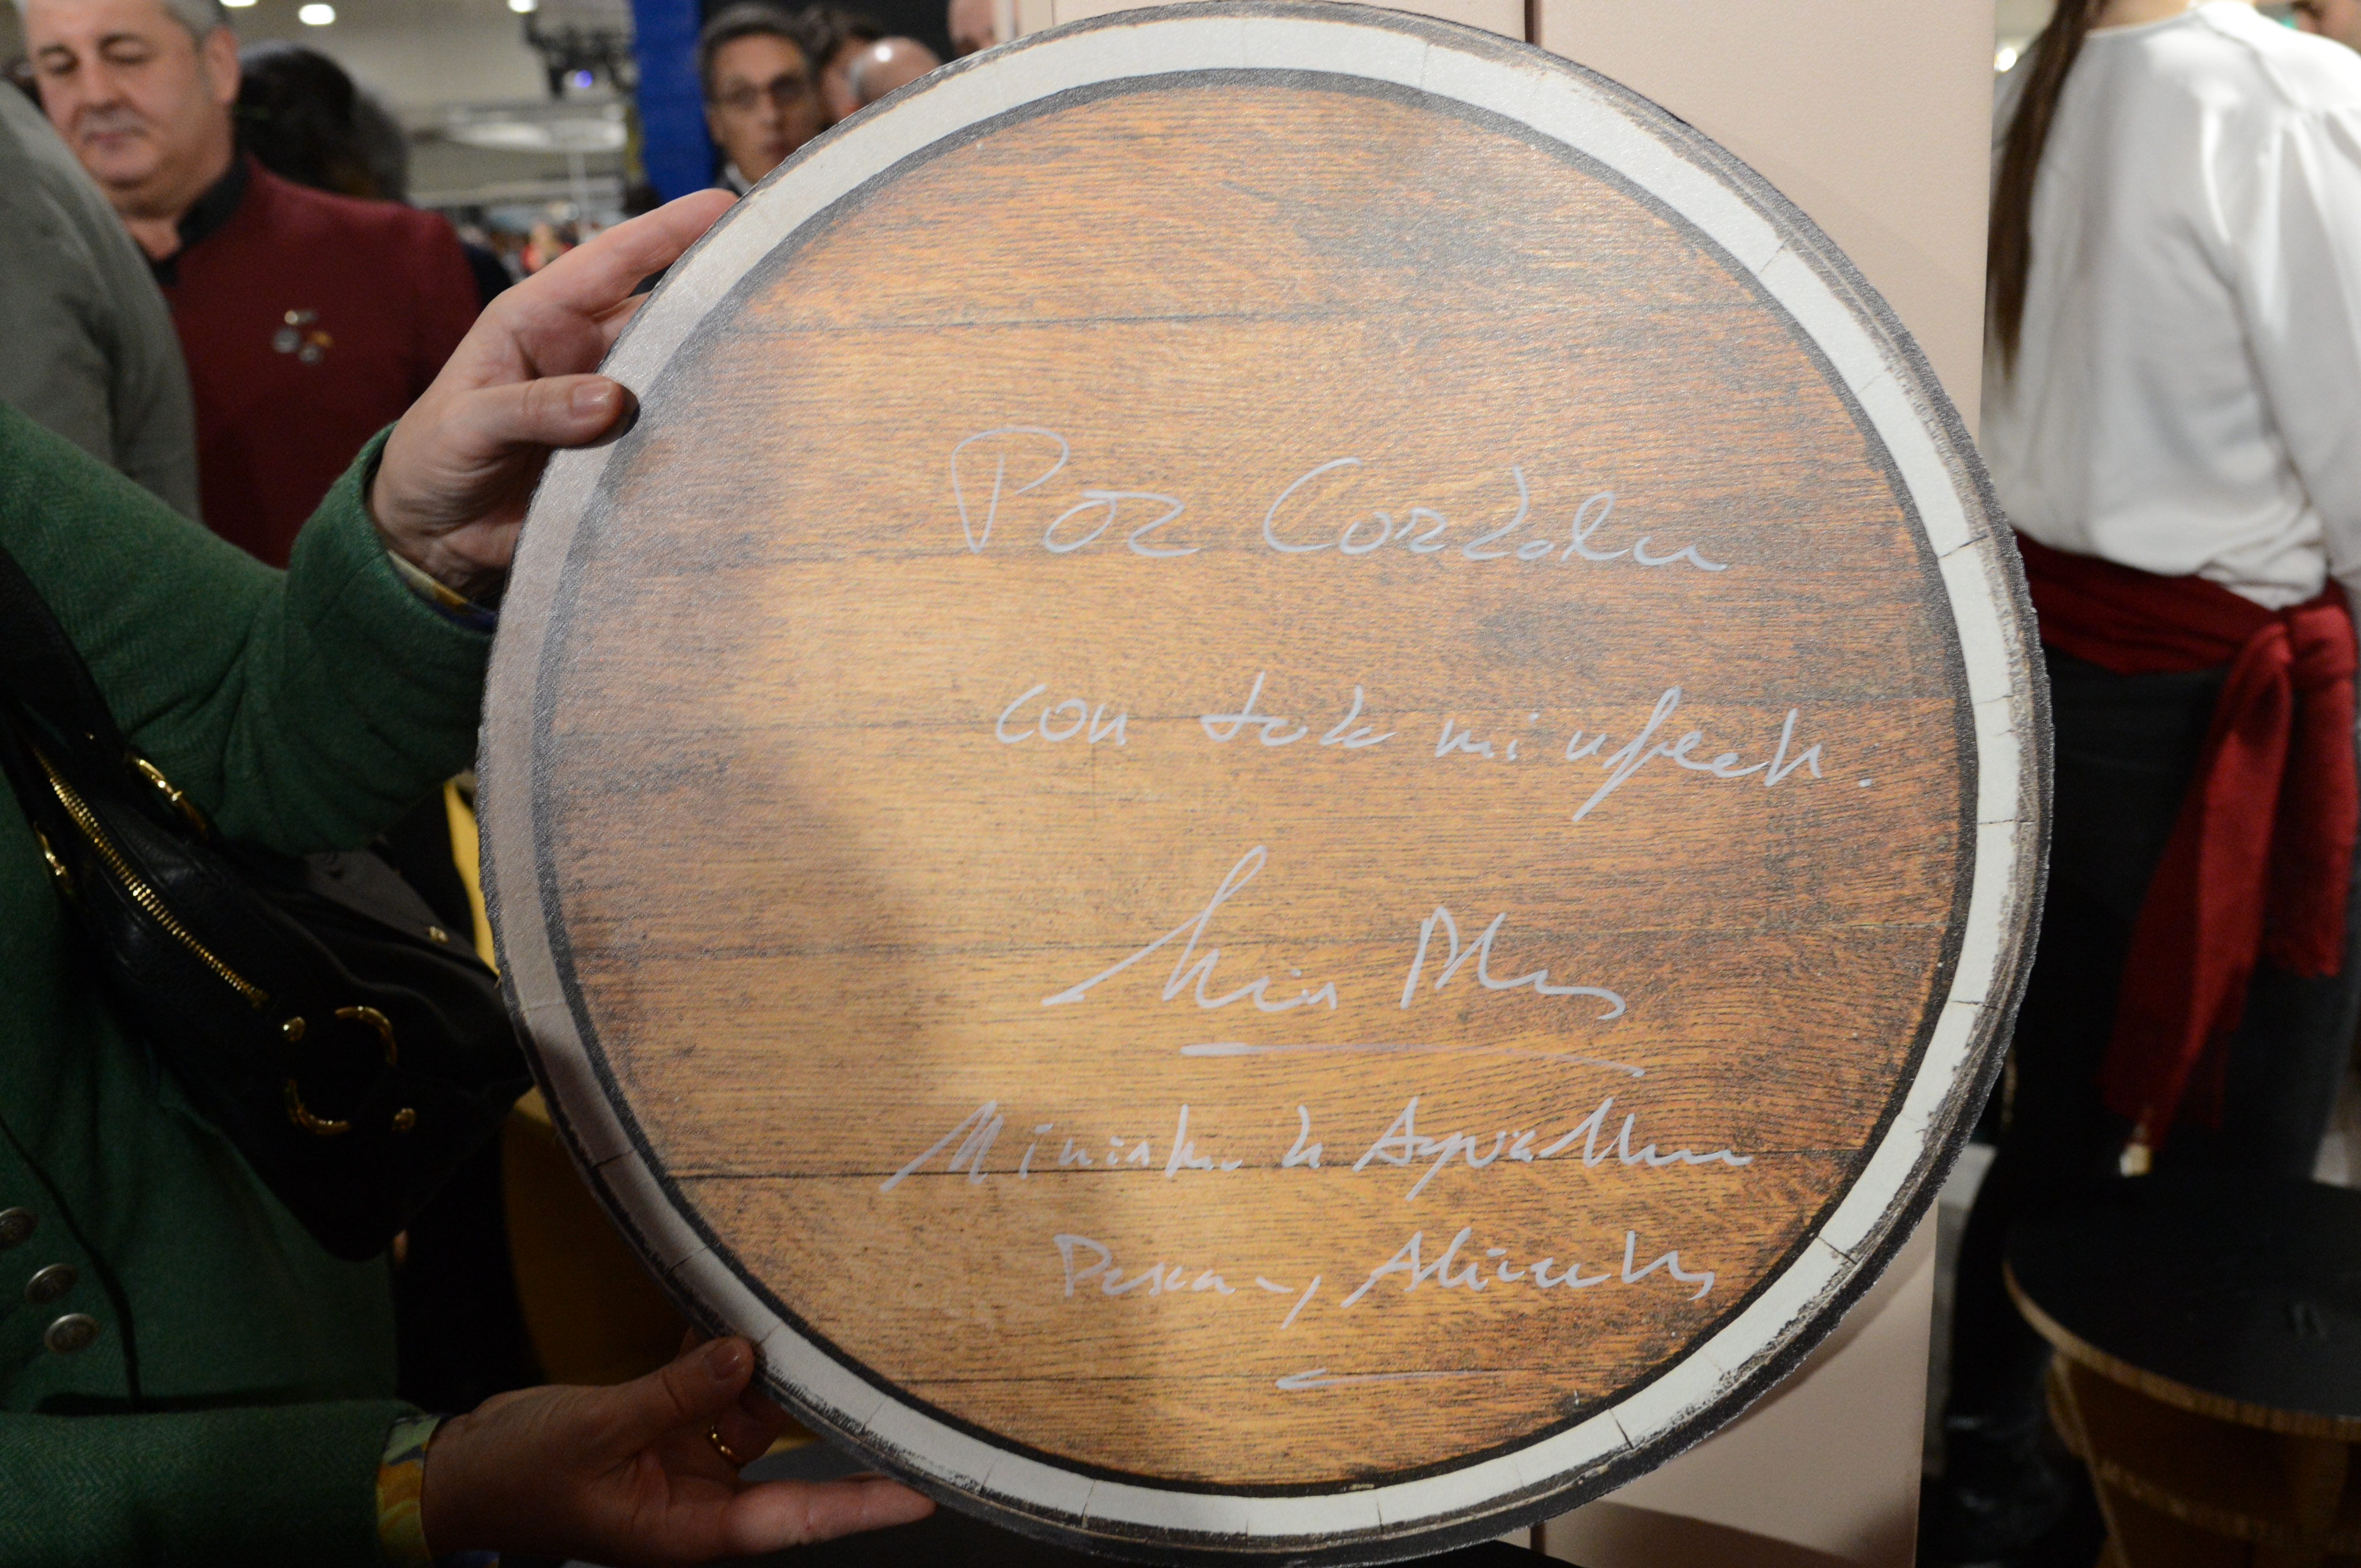 Por Córdoba
con todo mi afecto.
Luis Planas
Ministro de Agricultura
Pesca y Alimentación